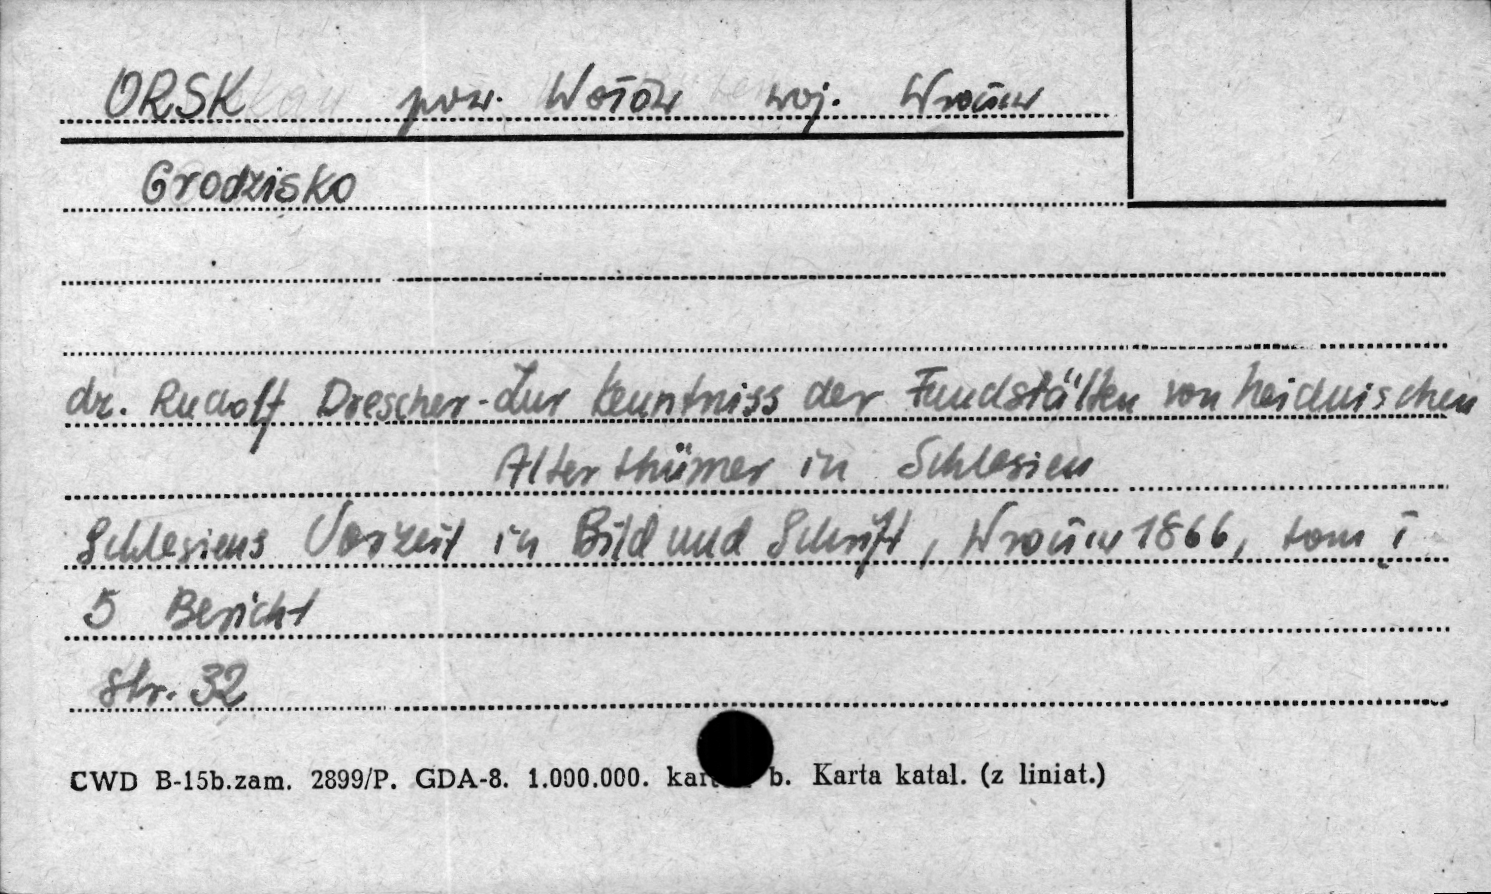 ORSK pow. Wołów woj. Wrocław
Grodzisko
dr. Rudolf Drescher - Zur Kenntniss der Fundstätten von heidnischen
Alterthümer in Schlesien
Schlesiens Vorzeit in Bild und Schrift, Wrocław 1866, tom I
5 Bericht
str. 32
CWD B-15b.zam. 2899/P. GDA-8. 1.000.000. b. Karta katal. (z liniat.)